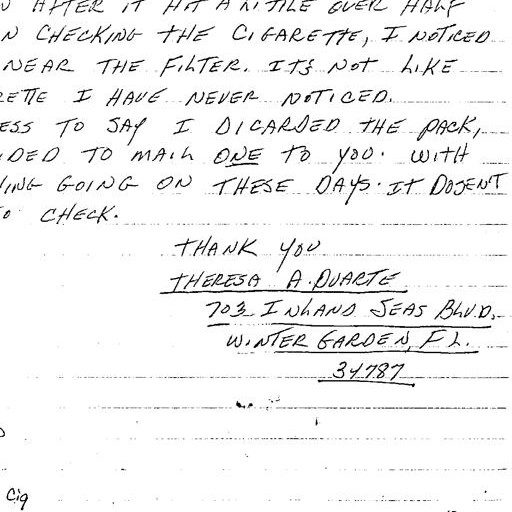 AFTER IT HIT A LITTLE OVER HALF
N CHECKING THE CIGARETTE, I NOTICED
NEAR THE FILTER. IT'S NOT LIKE
ETTE I HAVE NEVER NOTICED.
ESS TO SAY I DICARDED THE PACK,
DED TO MAIL ONE TO YOU. WITH
ING GOING ON THESE DAYS. IT DOSEN'T
O CHECK.
THANK YOU
THERESA A. DUARTE
703 INLAND SEAS BLVD.
WINTER GARDEN, FL.
34787
Cig